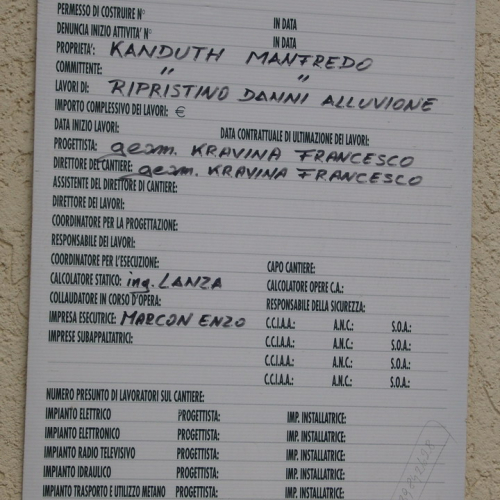 PERMESSO DI COSTRUIRE N° IN DATA
DENUNCIA INIZIO ATTIVITA' N° IN DATA
PROPRIETA': KANDUTH MANFREDO
COMMITTENTE: " "
LAVORI DI: RIPRISTINO DANNI ALLUVIONE
IMPORTO COMPLESSIVO DEI LAVORI: €
DATA INIZIO LAVORI: DATA CONTRATTUALE DI ULTIMAZIONE DEI LAVORI:
PROGETTISTA: geom. KRAVINA FRANCESCO
DIRETTORE DEL CANTIERE: geom. KRAVINA FRANCESCO
ASSISTENTE DEL DIRETTORE DI CANTIERE:
DIRETTORE DEI LAVORI:
COORDINATORE PER LA PROGETTAZIONE:
RESPONSABILE DEI LAVORI:
COORDINATORE PER L'ESECUZIONE: CAPO CANTIERE:
CALCOLATORE STATICO: ing. LANZA CALCOLATORE OPERE C.A.:
COLLAUDATORE IN CORSO D'OPERA: RESPONSABILE DELLA SICUREZZA:
IMPRESA ESECUTRICE: MARCON ENZO C.C.I.A.A.: A.N.C.: S.O.A.:
IMPRESE SUBAPPALTATRICI: C.C.I.A.A.: A.N.C.: S.O.A.:
C.C.I.A.A.: A.N.C.: S.O.A.:
C.C.I.A.A.: A.N.C.: S.O.A.:
NUMERO PRESUNTO DI LAVORATORI SUL CANTIERE:
IMPIANTO ELETTRICO PROGETTISTA: IMP. INSTALLATRICE:
IMPIANTO ELETTRONICO PROGETTISTA: IMP. INSTALLATRICE:
IMPIANTO RADIO TELEVISIVO PROGETTISTA: IMP. INSTALLATRICE:
IMPIANTO IDRAULICO PROGETTISTA: IMP. INSTALLATRICE:
IMPIANTO TRASPORTO E UTILIZZO METANO PROGETTISTA: IMP. INSTALLATRICE: